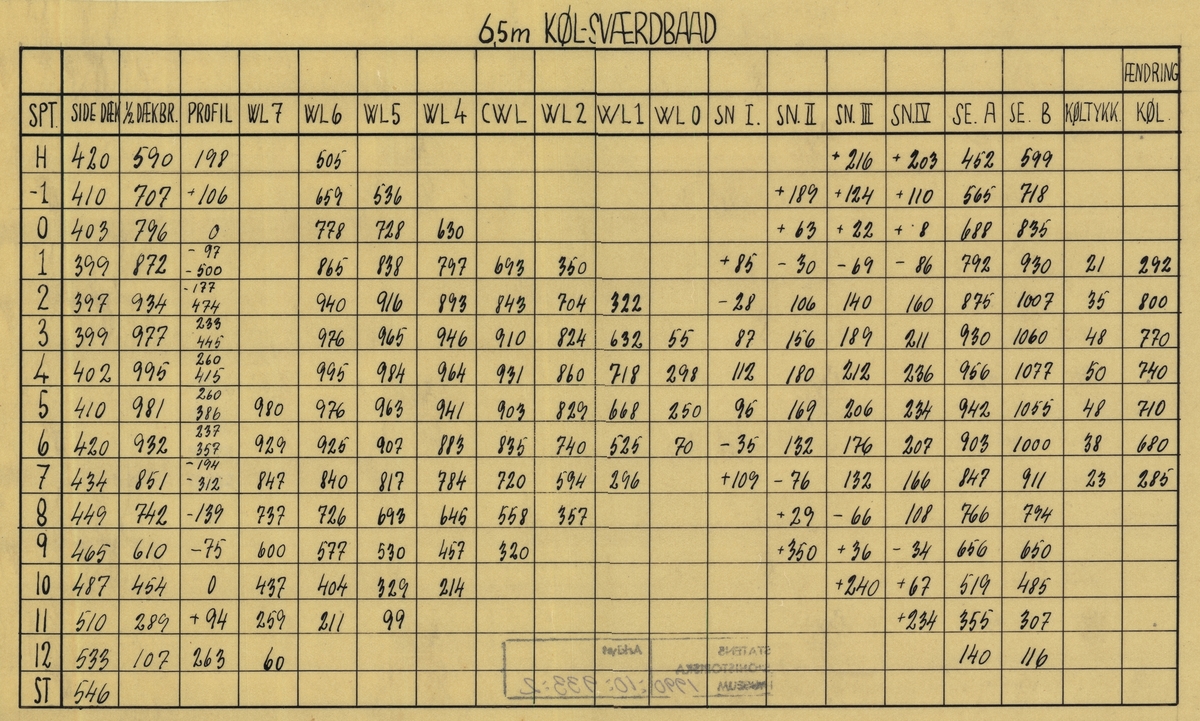 6,5m KØL-SVÆRDBAAD
ÆNDRING
SPT. SIDE DÆK ½ DÆKBR. PROFIL WL7 WL6 WL5 WL4 CWL WL2 WL1 WL0 SN I. SN. II SN. III SN. IV SE. A SE. B KØLTYKK. KØL.
H 420 590 198 505 +216 +203 452 599
-1 410 707 +106 659 536 +189 +124 +110 565 718
0 403 796 0 778 728 630 +63 +22 +8 688 835
1 399 872 -97 -500 865 838 797 693 350 +85 -30 -69 -86 792 930 21 292
2 397 934 -177 474 940 916 893 843 704 322 -28 106 140 160 875 1007 35 800
3 399 977 233 445 976 965 946 910 824 632 55 87 156 189 211 930 1060 48 770
4 402 995 260 415 995 984 964 931 860 718 298 112 180 212 236 956 1077 50 740
5 410 981 260 386 980 976 963 941 903 829 668 250 95 169 206 234 942 1055 48 710
6 420 932 237 357 929 925 907 883 835 740 525 70 -35 132 176 207 903 1000 38 680
7 434 851 -194 -312 847 840 817 784 720 594 296 +109 -76 132 166 847 911 23 285
8 449 742 -139 737 726 693 645 558 357 +29 -66 108 766 794
9 465 610 -75 600 577 530 457 320 +350 +36 -34 656 650
10 487 454 0 437 404 329 214 +240 +67 519 485
11 510 289 +94 259 211 99 +234 355 307
12 533 107 263 60 140 116
ST 546
STATENS
SJÖHISTORISKA
MUSEUM
Arkivnr
1990:10:933:2